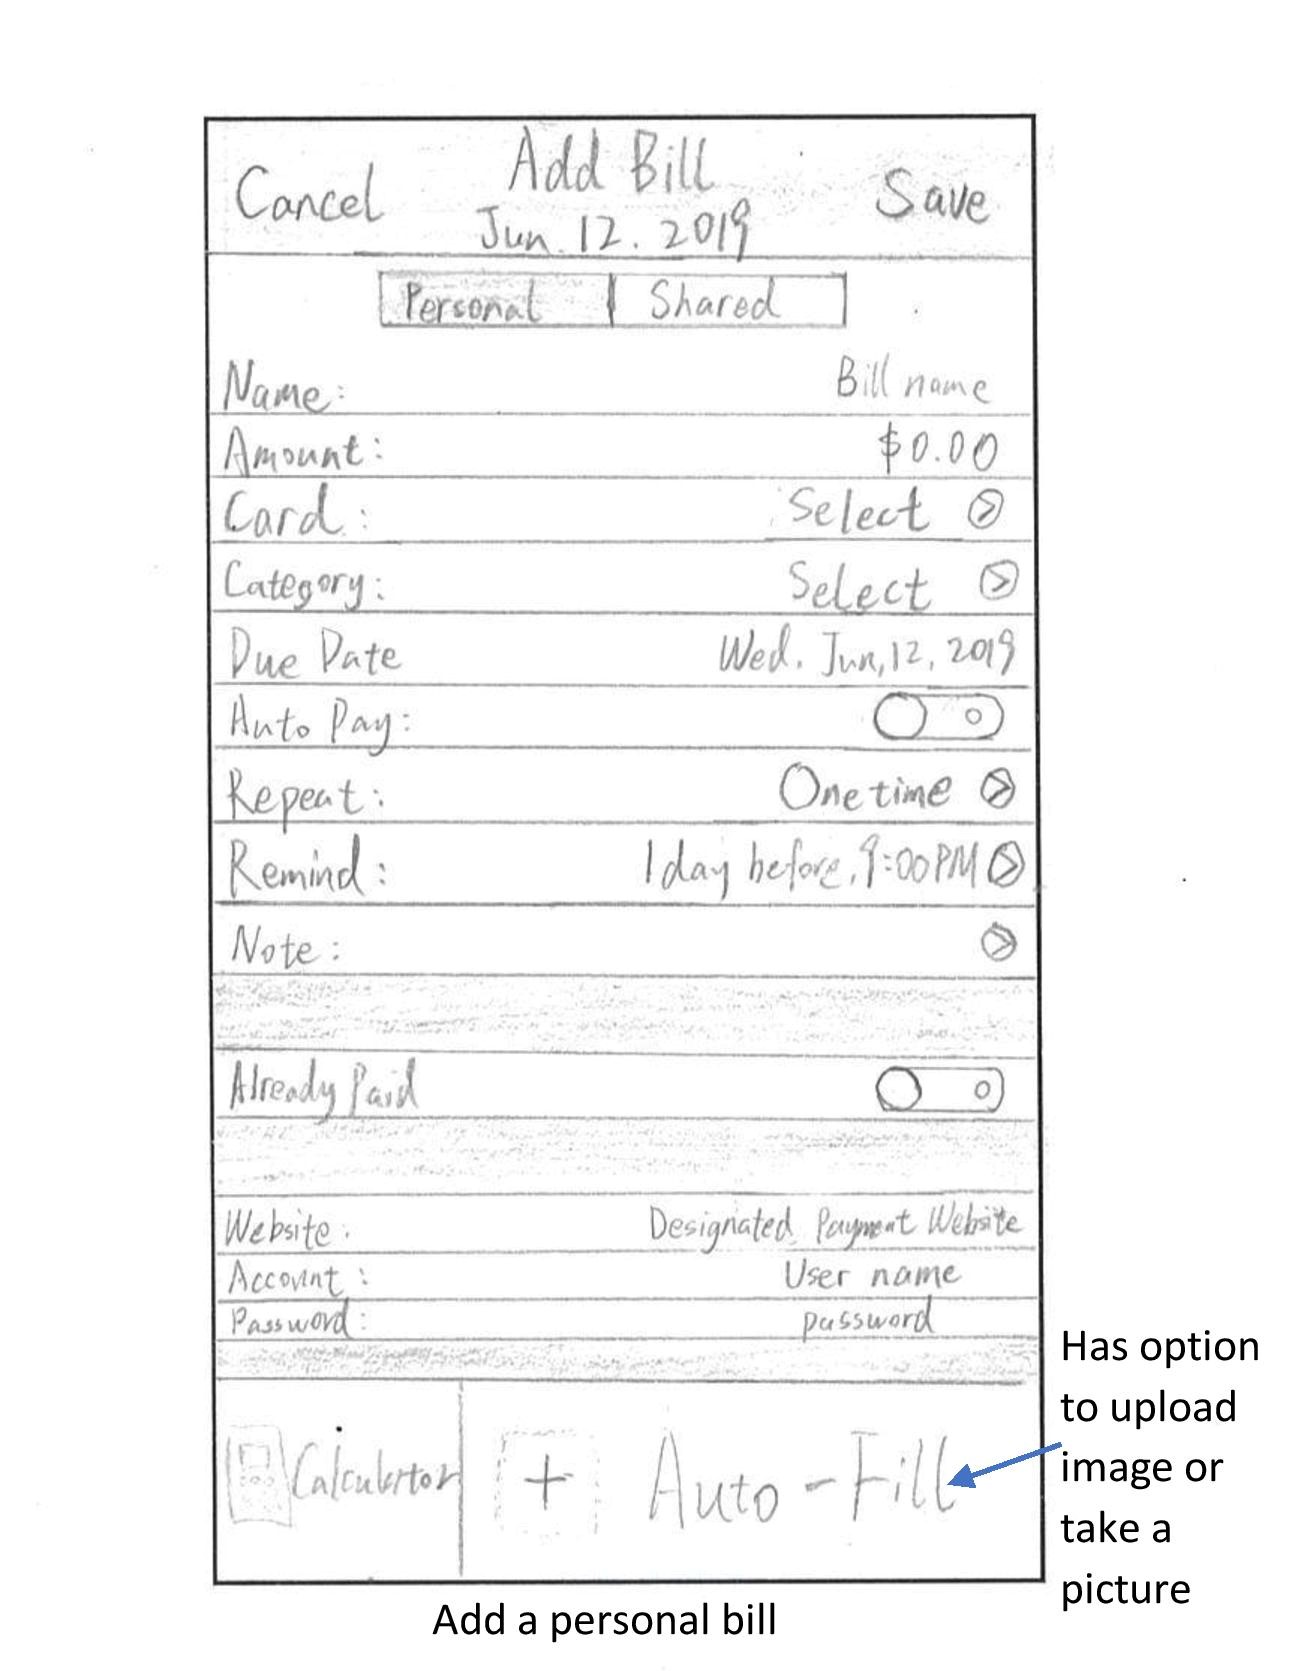 Cancel Add Bill Save
Jun. 12. 2019
Personal Shared
Name: Bill name
Amount: $0.00
Card: Select
Category: Select
Due Date Wed. Jun, 12, 2019
Auto Pay:
Repeat: One time
Remind: 1 day before, 9:00PM
Note:
Already Paid
Website: Designated Payment Website
Account: User name
Password: password
Calculator + Auto-Fill
Has option
to upload
image or
take a
picture
Add a personal bill